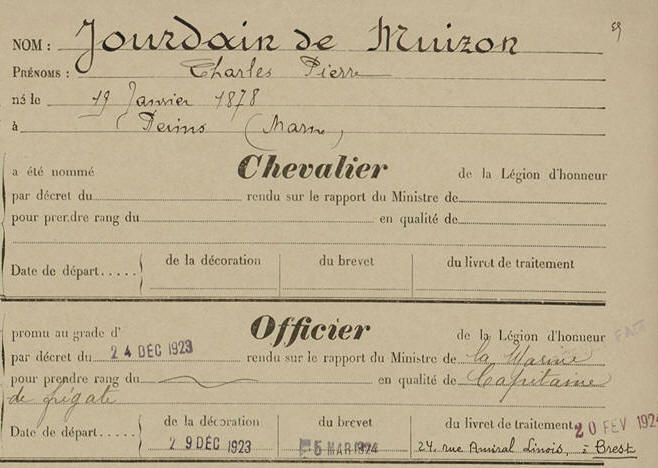 NOM : Jourdain de Muizon
PRÉNOMS : Charles Pierre
né le 19 Janvier 1878
à Reims (Marne)
a été nommé Chevalier de la Légion d'honneur
par décret du rendu sur le rapport du Ministre de
pour prendre rang du en qualité de
Date de départ..... de la décoration du brevet du livret de traitement
promu au grade d' Officier de la Légion d'honneur FAIT
par décret du 24 DEC 1923 rendu sur le rapport du Ministre de la Marine
pour prendre rang du en qualité de Capitaine
de frégate
Date de départ..... de la décoration du brevet du livret de traitement 20 FEV 1924
29 DEC 1923 5 MAR 1924 24, rue Amiral Linois, à Brest